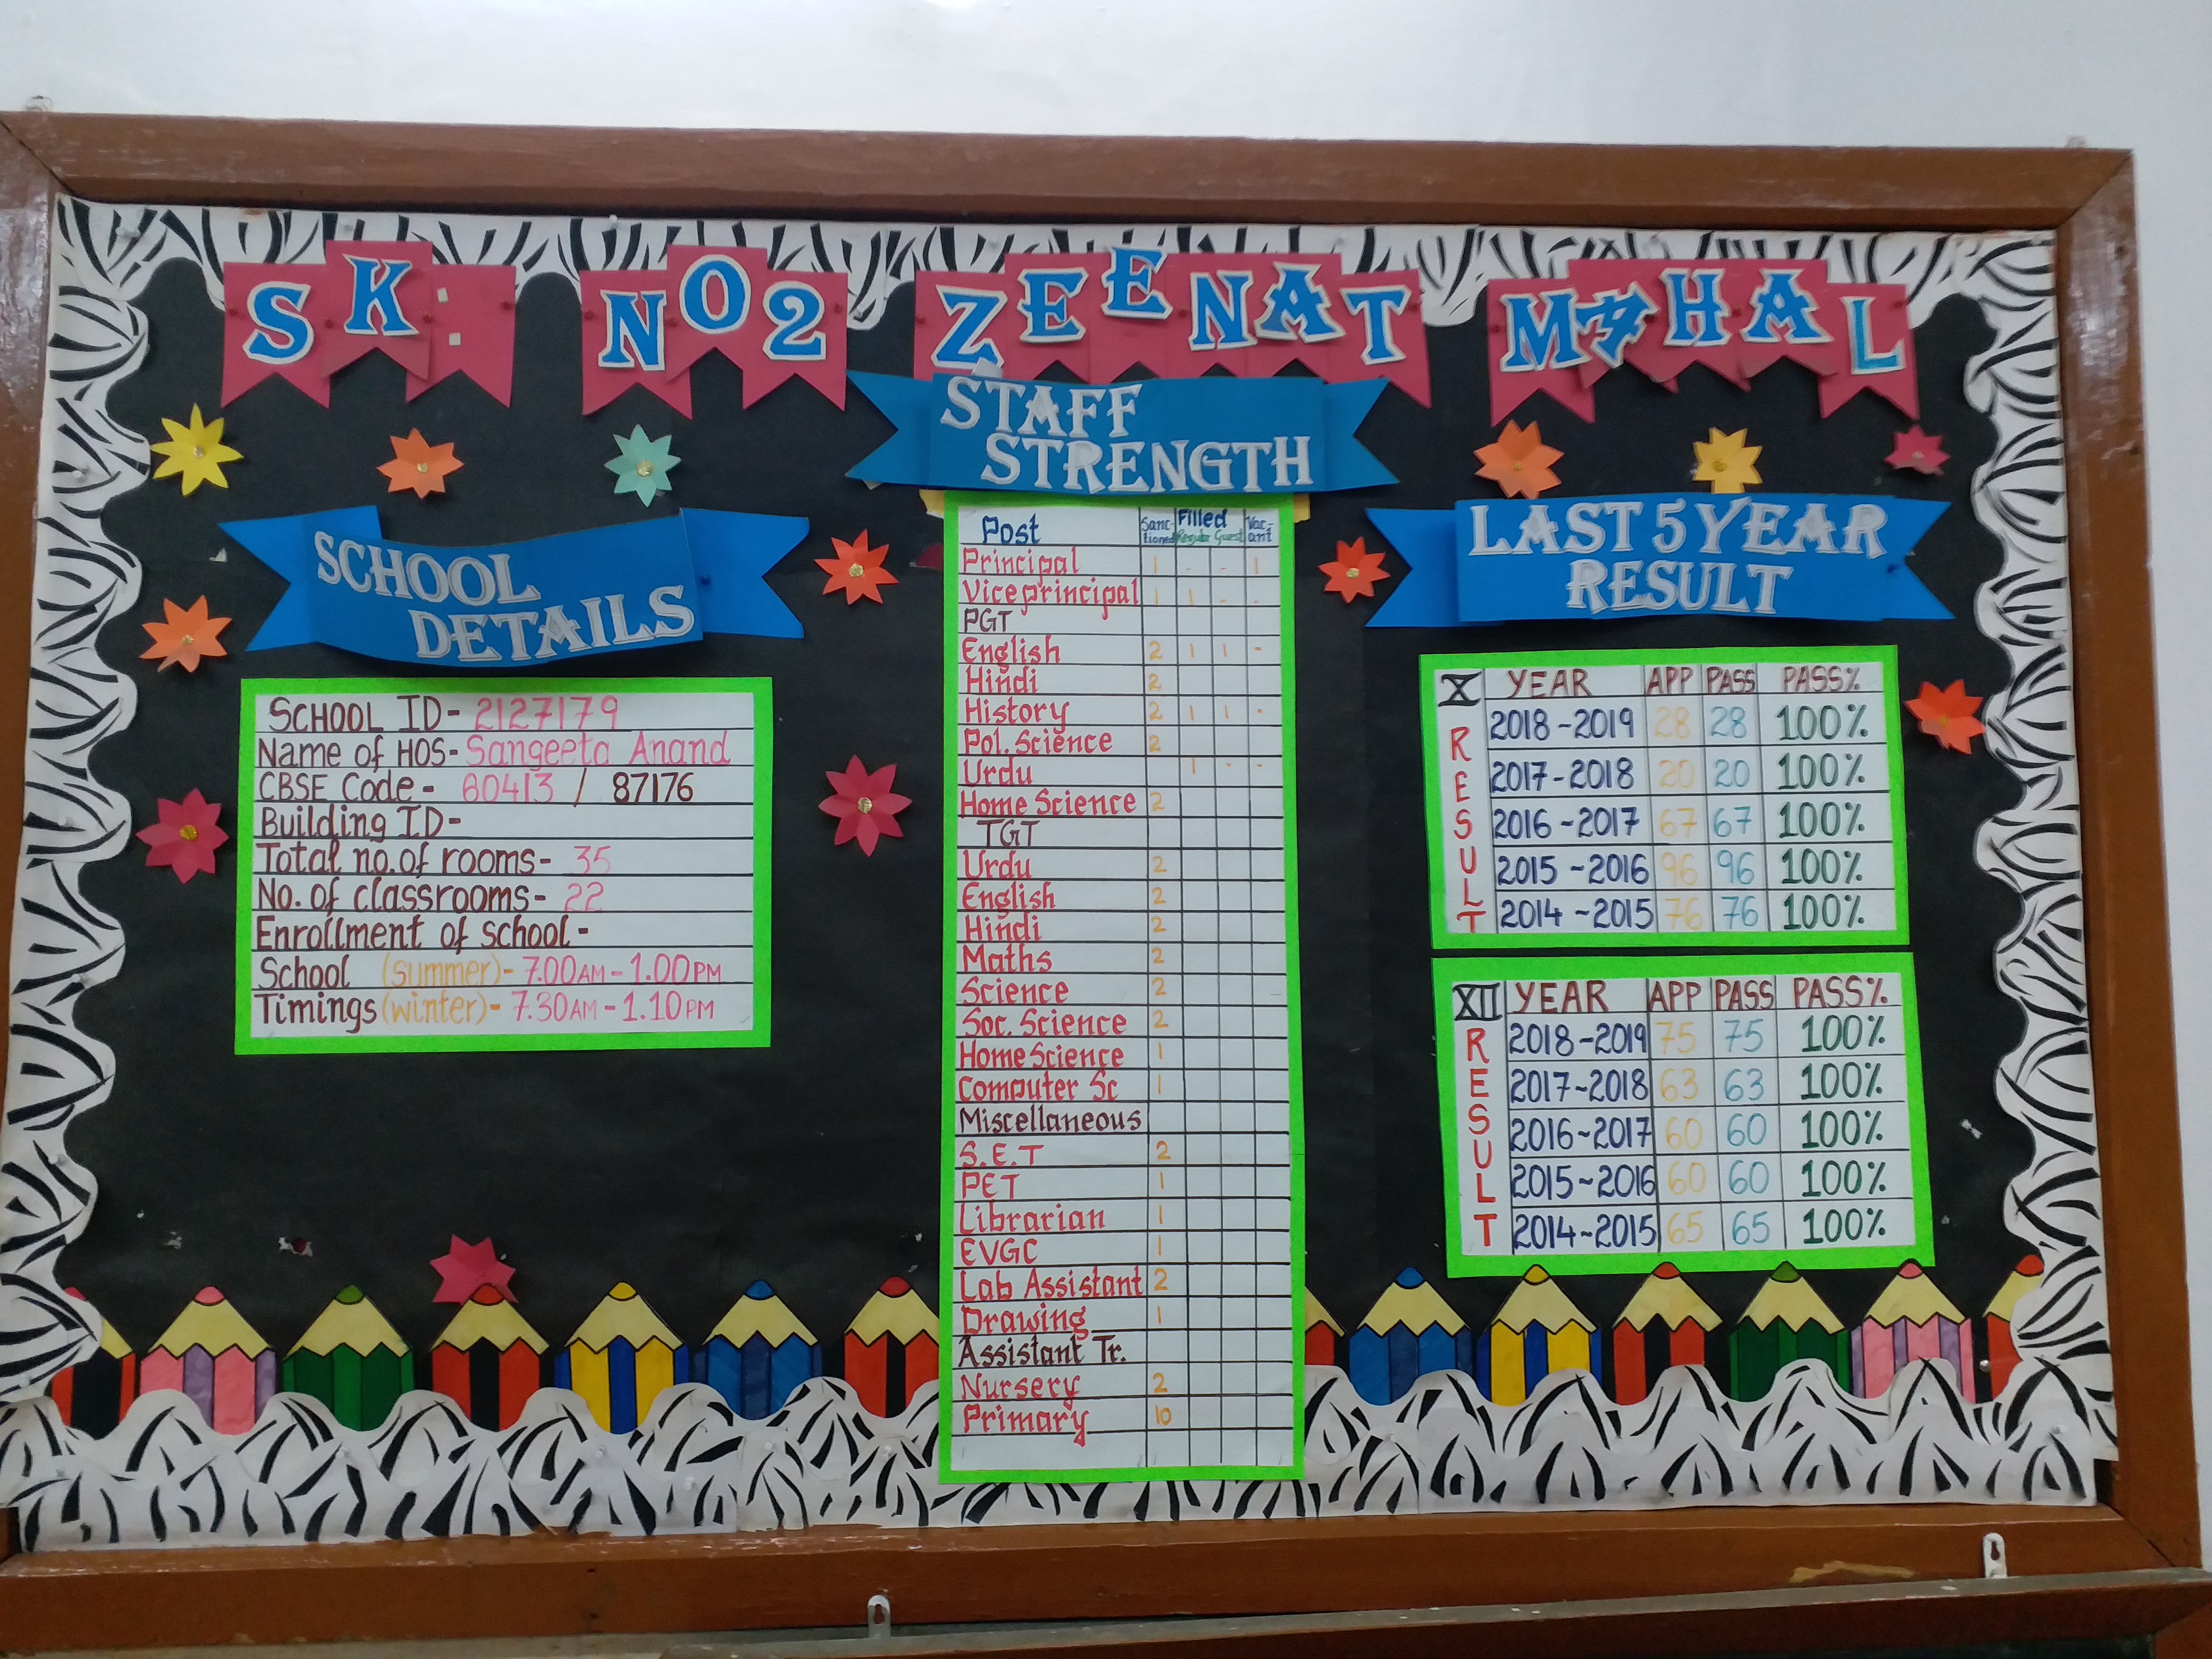 SK: NO2 ZEENAT MAHAL
SCHOOL
DETAILS
SCHOOL ID- 2127179
Name of HOS- Sangeeta Anand
CBSE Code- 60413 / 87176
Building ID-
Total no. of rooms- 35
No. of classrooms- 22
Enrollment of school-
School (summer)- 7.00AM-1.00PM
Timings (winter)- 7.30AM-1.10PM
STAFF
STRENGTH
Post Sanctioned Filled Regular Guest Vacant
Principal 1 - - 1
Viceprincipal 1 1 - -
PGT
English 2 1 1 -
Hindi 2
History 2 1 1 -
Pol. Science 2
Urdu 1 - -
Home Science 2
TGT
Urdu 2
English 2
Hindi 2
Maths 2
Science 2
Soc. Science 2
Home Science 1
Computer Sc 1
Miscellaneous
S.E.T 2
PET 1
Librarian 1
EVGC 1
Lab Assistant 2
Drawing 1
Assistant Tr.
Nursery 2
Primary 10
LAST 5 YEAR
RESULT
X RESULT
YEAR APP PASS PASS%
2018-2019 28 28 100%
2017-2018 20 20 100%
2016-2017 67 67 100%
2015-2016 96 96 100%
2014-2015 76 76 100%
XII RESULT
YEAR APP PASS PASS%
2018-2019 75 75 100%
2017-2018 63 63 100%
2016-2017 60 60 100%
2015-2016 60 60 100%
2014-2015 65 65 100%